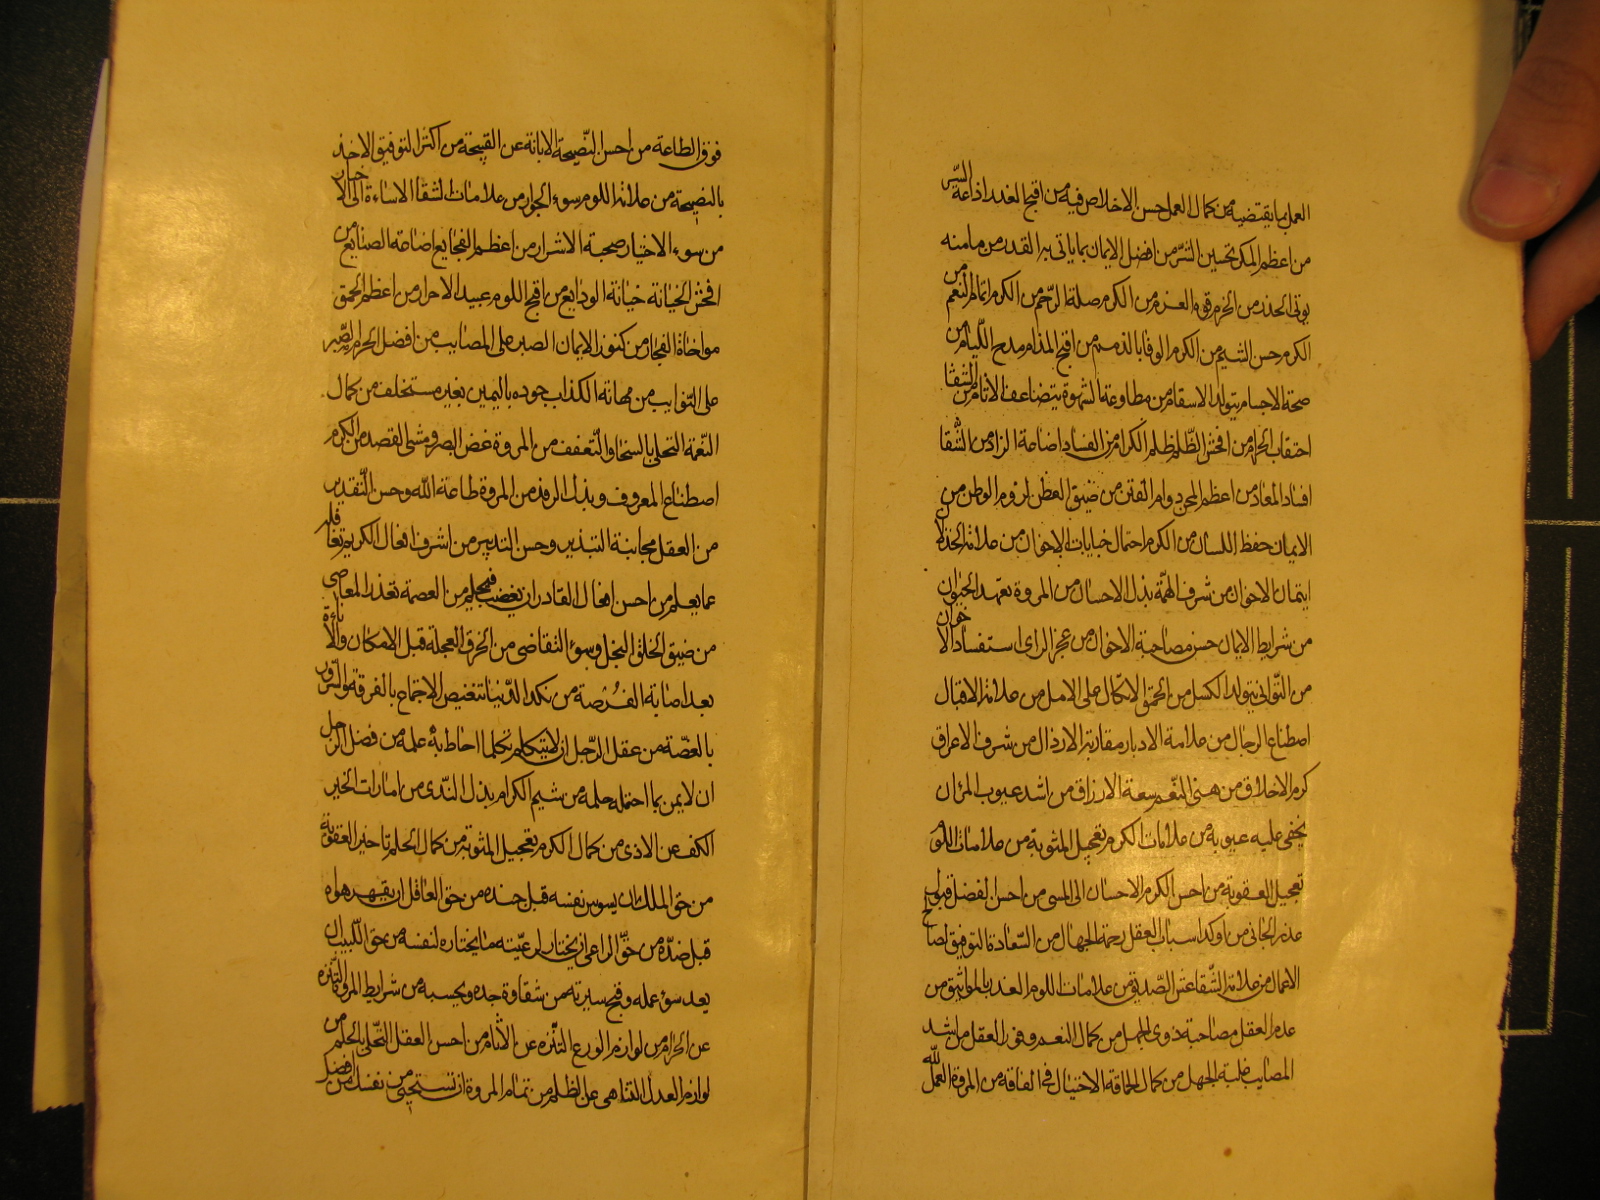 العمل بما يقتضيه من كمال العمل حسن الاخلاص فيه من اقبح الغدر اذاعة السّر
من اعظم المكر تحسين الشرّ من افضل الايمان بما ياتى به القدر من مامنه
يوتى الحذر من الحزم قوة العزم من الكرم صلة الرّحم من الكرم اتمام النعم من
الكرم حسن الشيم من الكرم الوفا بالذمم من اقبح المذام مدح اللّيام من
صحة الاجسام يتولد الاسقام من مطاوعة الشهوة يتضاعف الاثام من الشقا
احتقاب الحرام من افحش الظّلم ظلم الكرام من الفساد اضاعة الزاد من الشّقا
افساد المعاد من اعظم المحن دوام الفتن من ضيق العطن لزوم الوطن من
الايمان حفظ اللسان من الكرم احتمال جنايات الاخوان من علامة الخذلا
ايتمان الاخوان من شرف الهمّة بذل الاحسان من المروة تعهد الجيران
من شرايط الايمان حسن مصاحبة الاخوان من عجز الراى استفساد الاخوان
من التّوانى يتولد الكسل من الحمق الاتكال على الامل من علامة الاقبال
اصطناع الرجال من علامة الادبار مقارنة الارذال من شرف الاعراق
كرم الاخلاق من هنى النّعم سعة الارزاق من اشد عيوب المرء ان
يخفى عليه عيوبه من علامات الكرم تعجيل المثوبة من علامات اللوم
تعجيل العقوبة من احسن الكرم الاحسان الى المسى من احسن الفضل قبول
عذر الجانى من اوكد اسباب العقل رحمة الجهال من السّعادة التوفيق لصالح
الاعمال من علامة الشّقا غش الصّديق من علامات اللوم الغدر بالمواثيق من
عدم العقل مصاحبة ذوى الجهل من كمال النعم وفور العقل من اشد
المصايب غلبة الجهل من كمال الحماقة الاختيال فى الفاقة من المروة العمل لله
فوق الطاعة من احسن النّصيحة الابانة عن القبيحة من اكثر التوفيق الاخذ
بالنصيحة من علامة اللوم سوء الجوار من علامات الشقا الاساءة الى الاخيار
من سوء الاختيار صحبة الاشرار من اعظم الفجايع اضاعة الصنايع من
افحش الخيانة خيانة الودايع من اقبح اللوم عبيد الاحرار من اعظم الحمق
مواخاة الفجار من كنوز الايمان الصبر على المصايب من افضل الحزم الصّبر
على النّوايب من مهانة الكذاب جوده باليمين بغير مستحلف من كمال
النّعمة التحلى بالسخا والتّعفف من المروة غض البصر ومشى القصد من الكرم
اصطناع المعروف وبذل الرفد من المروة طاعة الله وحسن التّقدير
من العقل مجانبة التبذير وحسن التدبير من اشرف افعال الكريم تغافله
عما يعلم من احسن افعال القادر ان يغضب فيحلم من العصمة تعذر المعاصى
من ضيق الخلق البخل وسوء التقاضى من الخرق العجلة قبل الامكان والاناءة
بعد اصابة الفرصة من نكد الدّنيا تنغيص الاجتماع بالفرقة والسّرور
بالغصّة من عقل الرّجل ان لا يتكلم بكلما احاط به علمه من فضل الرّجل
ان لا يمن بما احتمله حلمه من شيم الكرام بذل النّدى من امارات الخير
الكف عن الاذى من كمال الكرم تعجيل المثوبة من كمال الحلم تاخير العقوبة
من حق الملك ان يسوس نفسه قبل جنده من حق العاقل ان يقهر هواه
قبل ضدّه من حقّ الراعى ان يختار لرعيّته ما يختاره لنفسه من حق اللّبيب ان
يعد سوء عمله وقبح سيرته من شقاوة جده ونحسه من شرايط المروة التّنزه
عن الحرام من لوازم الورع التنّزه عن الأثام من احسن العقل التّحلى بالحلم من
لوازم العدل التناهى عن الظلم من تمام المروة ان تستحيى من نفسك من افضل